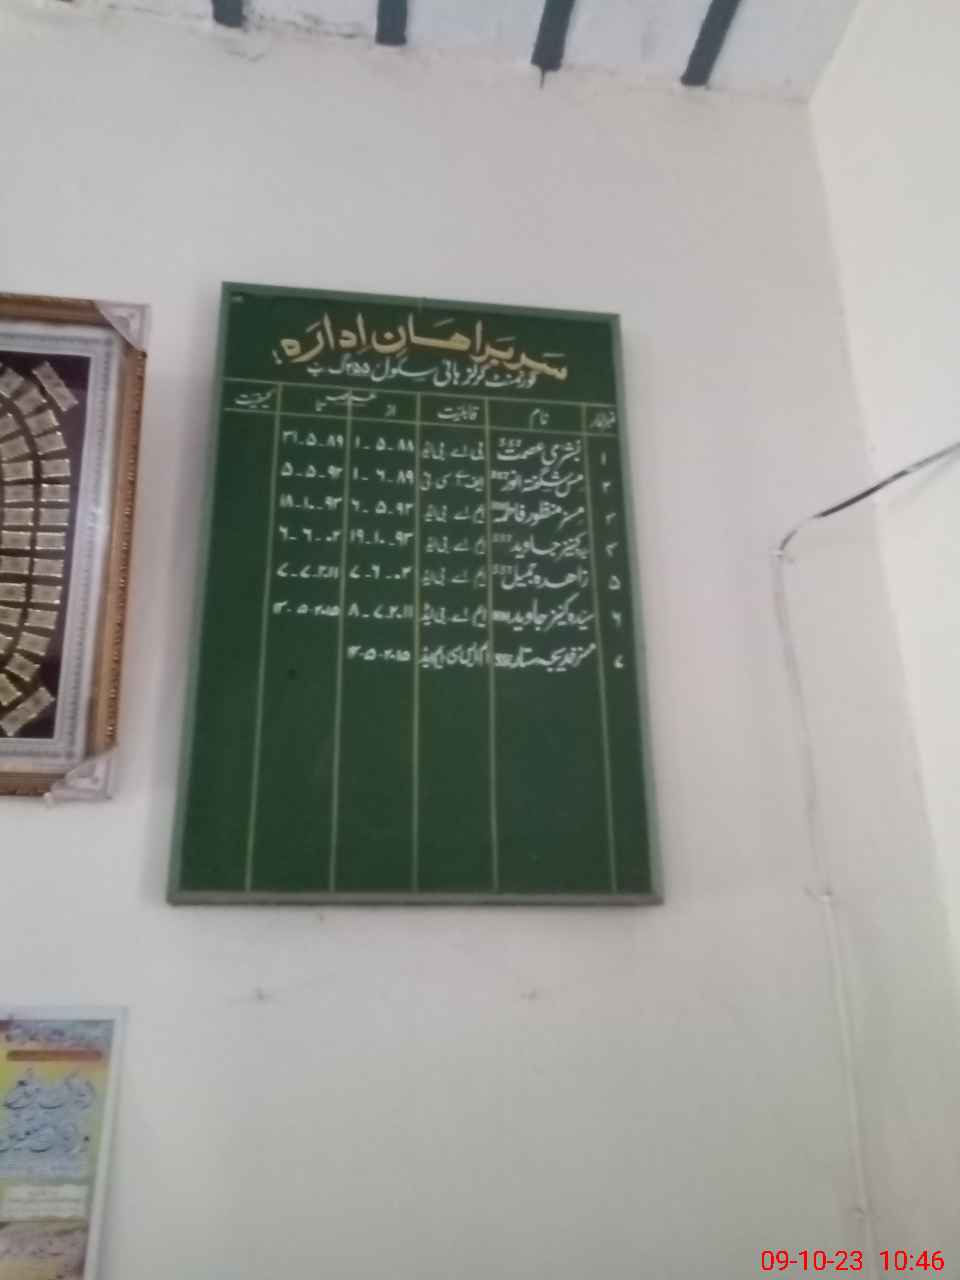 سربراہان ادارہ!
گورنمنٹ گرلز ہائی سکول ۲۵۵ گ ب
نمبرشمار نام قابلیت عرصہ کیفیت
از تا
۱ بشریٰ عصمت SST بی اے بی ایڈ ۸۸-۵-۱ ۸۹-۵-۳۱
۲ مس شگفتہ انور SST ایف ایس سی بی ۸۹-۶-۱ ۹۲-۵-۵
۳ مسز منظور فاطمہ ایم اے بی ایڈ ۹۲-۵-۶ ۹۳-۱۰-۱۸
۴ کنیز جاوید SST ایم اے بی ایڈ ۹۳-۱۰-۱۹ ۰۲-۶-۶
۵ زاہدہ جمیل SST ایم اے بی ایڈ ۰۲-۶-۷ ۲۰۱۱-۷-۷
۶ سیدہ کنیز جاوید ایم اے بی ایڈ ۲۰۱۱-۷-۸ ۲۰۱۵-۵-۱۲
۷ مسز خدیجہ ستار SSE ایم ایس سی ایم ایڈ ۲۰۱۵-۵-۱۲
09-10-23 10:46